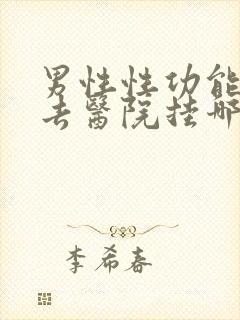 男性性功能
去醫院挂哪
李希春